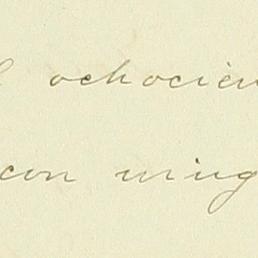 ochocien
con ning